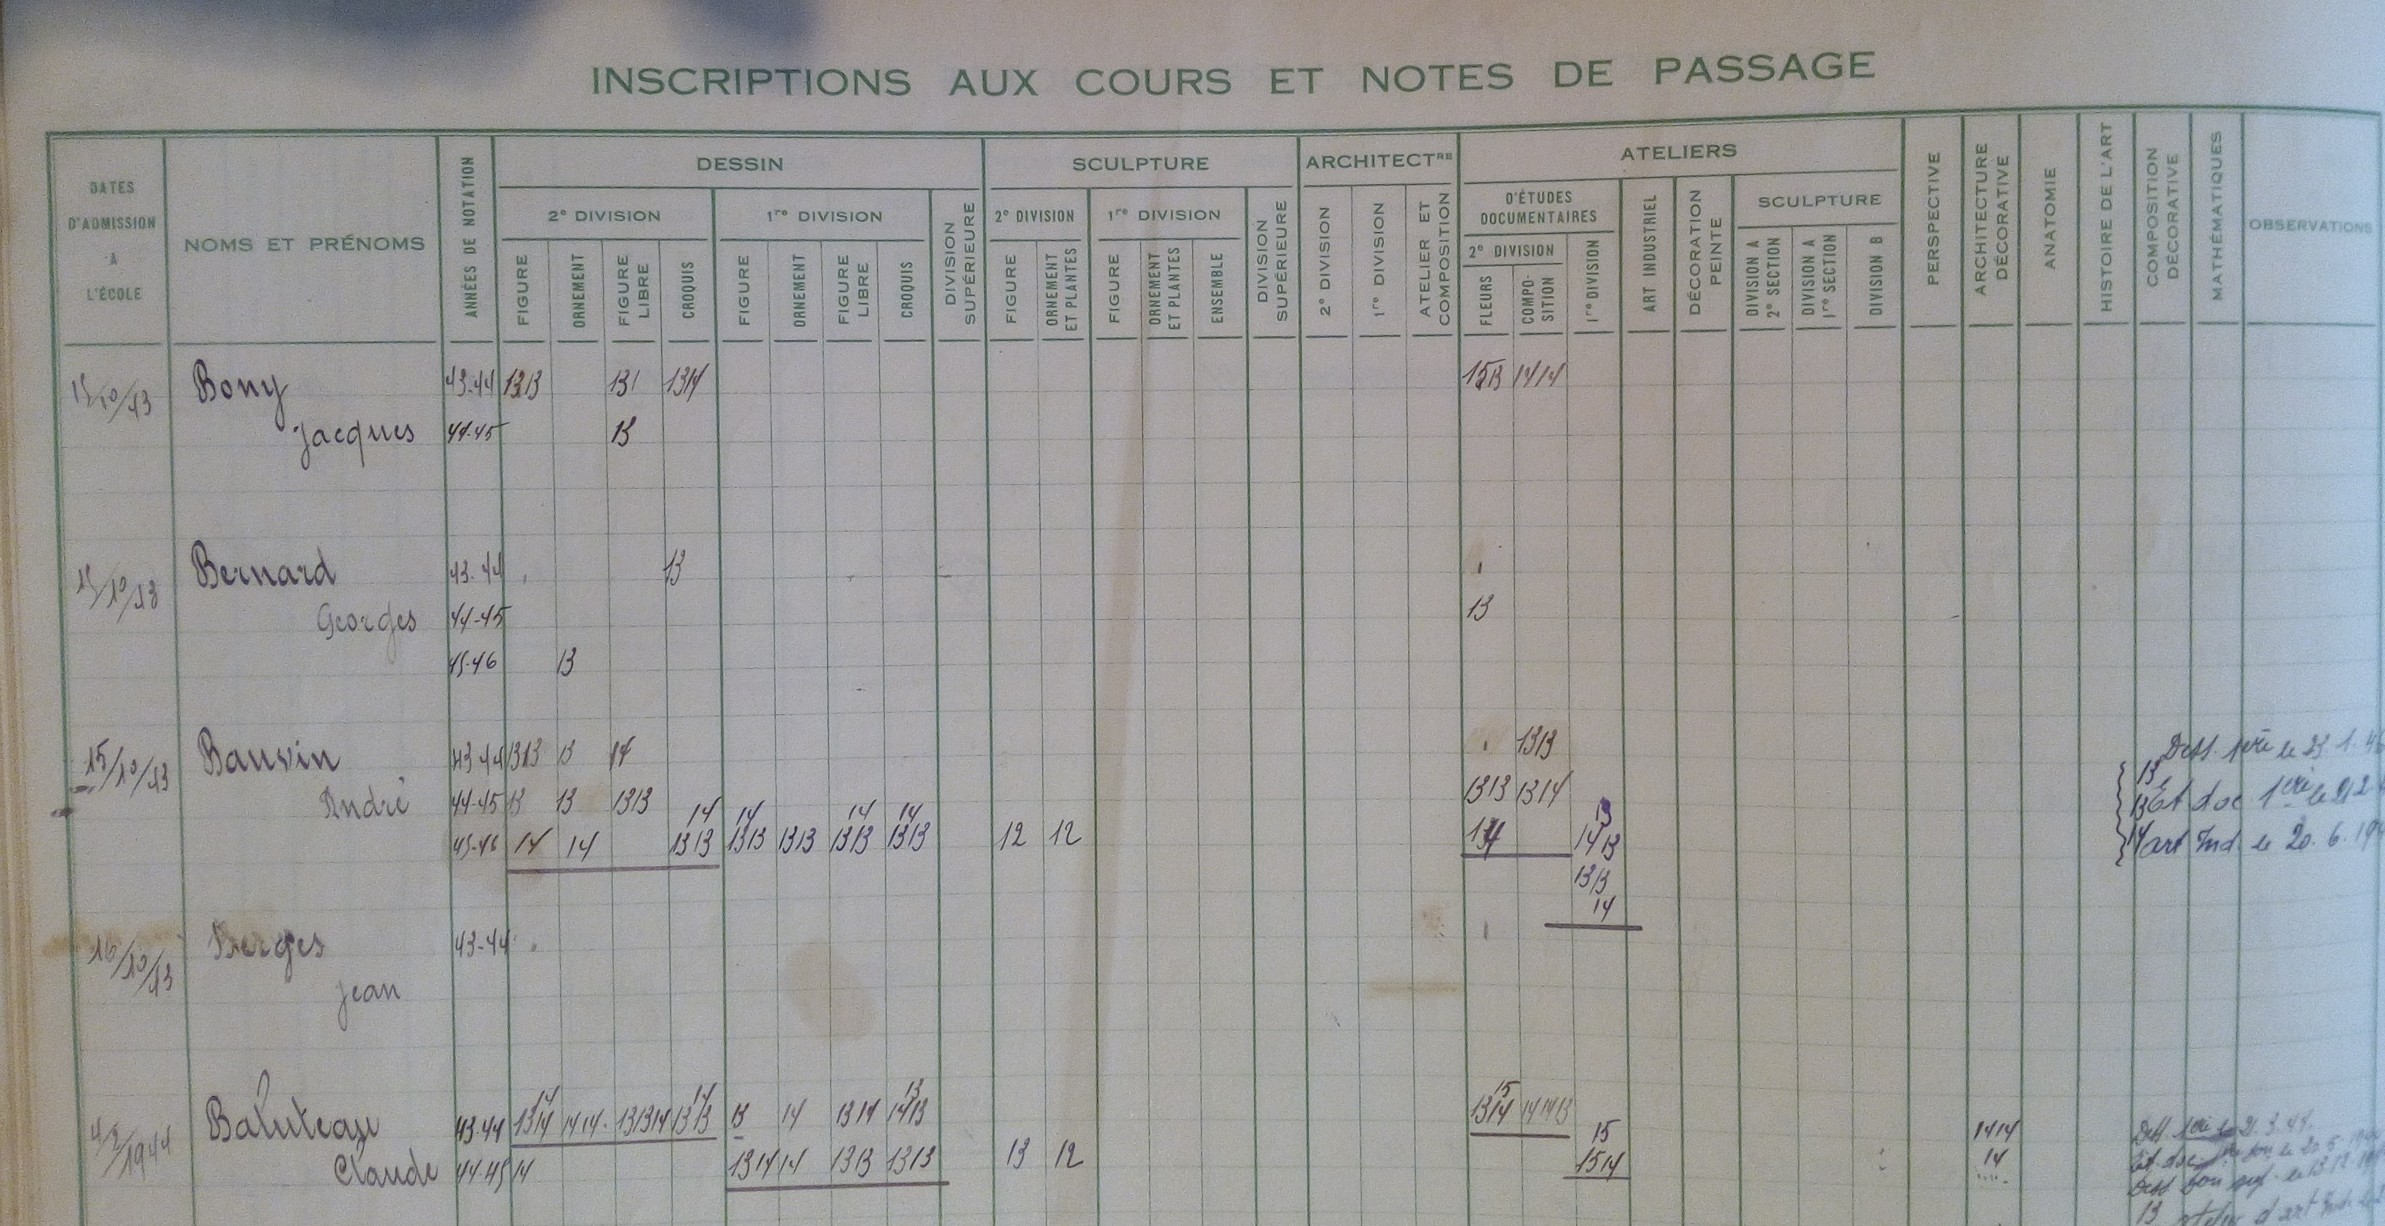 INSCRIPTIONS AUX COURS ET NOTES DE PASSAGE
DATES D'ADMISSION A L'ÉCOLE
NOMS ET PRÉNOMS
ANNÉES DE NOTATION
DESSIN
2e DIVISION
FIGURE
ORNEMENT
FIGURE LIBRE
CROQUIS
1re DIVISION
FIGURE
ORNEMENT
FIGURE LIBRE
CROQUIS
DIVISION SUPÉRIEURE
SCULPTURE
2e DIVISION
FIGURE
ORNEMENT ET PLANTES
1re DIVISION
FIGURE
ORNEMENT ET PLANTES
ENSEMBLE
DIVISION SUPÉRIEURE
ARCHITECTRE
2e DIVISION
1re DIVISION
ATELIER ET COMPOSITION
ATELIERS
D'ÉTUDES DOCUMENTAIRES
2e DIVISION
FLEURS
COMPO-SITION
1re DIVISION
ART INDUSTRIEL
DÉCORATION PEINTE
SCULPTURE
DIVISION A 2e SECTION
DIVISION A 1re SECTION
DIVISION B
PERSPECTIVE
ARCHITECTURE DÉCORATIVE
ANATOMIE
HISTOIRE DE L'ART
COMPOSITION DÉCORATIVE
MATHÉMATIQUES
OBSERVATIONS
15/10/43 Bony 43-44 13 13 13 13 14 13 14 14
Jacques 44-45 13
15/10/43 Bernard 43-44 13
Georges 44-45 13
45-46 13
15/10/43 Bauvin 43-44 13 13 13 14 13 13 Dess. 1ère le 23.1.46
André 44-45 13 13 13 13 13 13 13 14 13 Et doc 1ère le
14 14 14 14 13
45-46 14 14 13 13 13 13 13 13 13 13 13 13 12 12 14 13 14 art Ind. le 20.6.19
13 13
14
16/10/43 Berges 43-44
Jean
14 14 13 15
4/2/1944 Baluteau 43-44 13 14 14 14 13 13 14 13 13 13 14 13 14 14 13 13 14 14 14 13 15 14 14 Dess. 1ère le 21.3.44
Claude 44-45 14 13 14 14 13 13 13 13 13 12 15 14 14
13 d'art Ind.